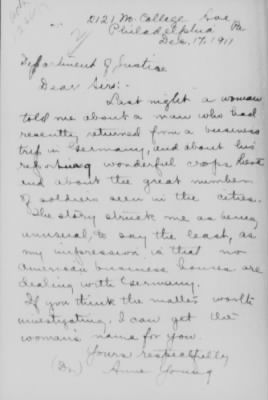 2121 N. College Ave
Philadelphia Pa
Dec. 17, 1917
Department of Justice
Dear Sirs:-
Last night a woman
told me about a man who had
recently returned from a business
trip in Germany, and about his
reporting wonderful crops here
and about the great number
of soldiers seen in the cities.
The story struck me as being
unusual, to say the least, as
my impression is that no
American business houses are
dealing with Germany.
If you think the matter worth
investigating, I can get the
woman's name for you.
Yours respectfully
(Dr.) Anna Young